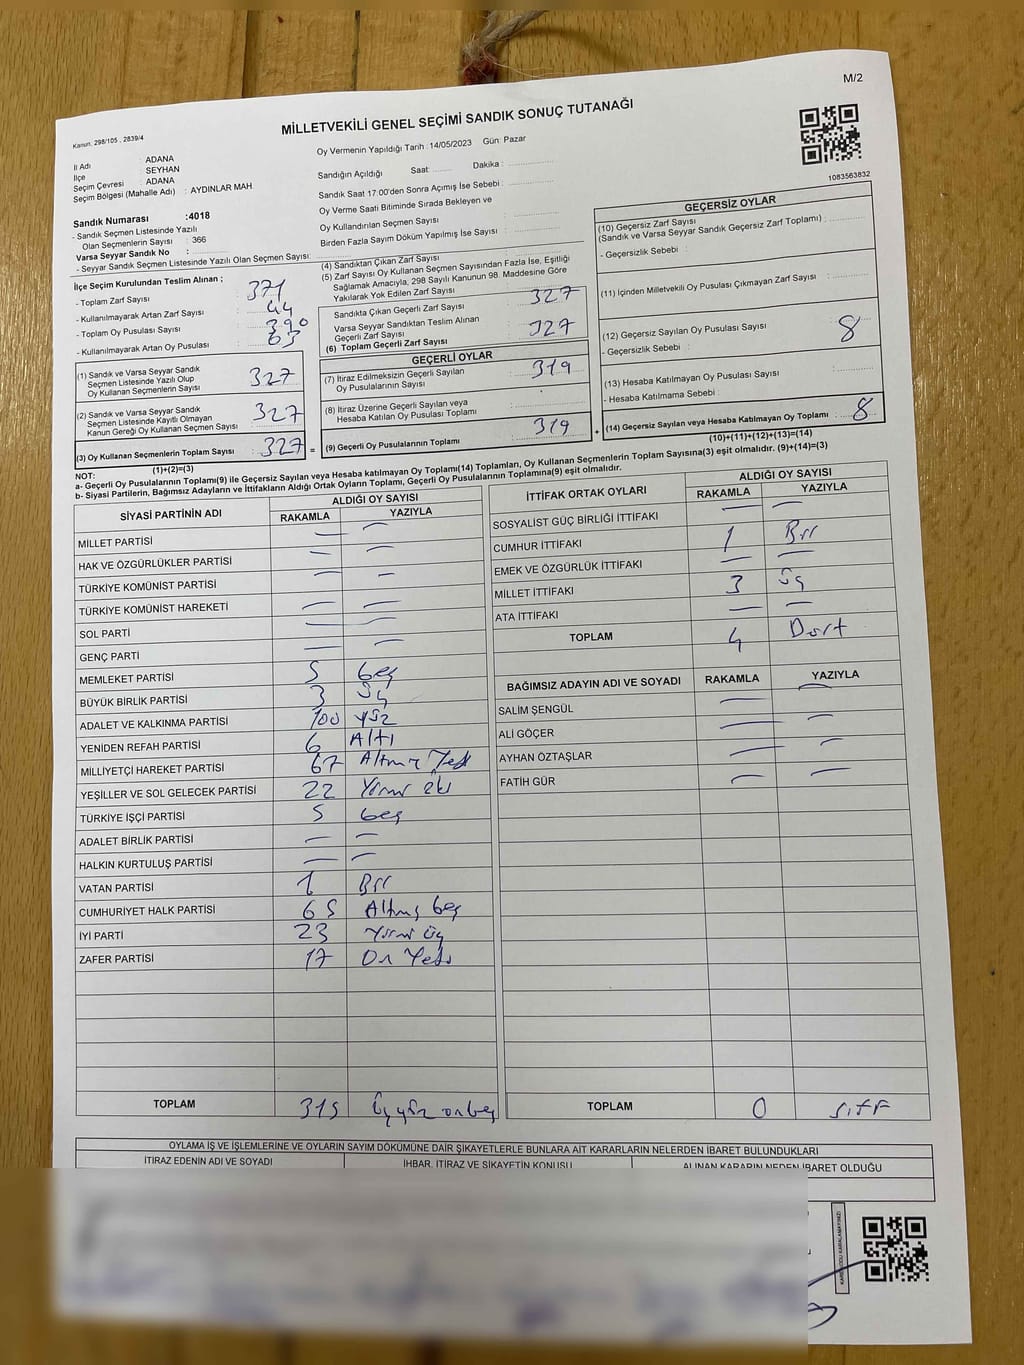 M/2
Kanun, 298/105 , 2839/4
MİLLETVEKİLİ GENEL SEÇİMİ SANDIK SONUÇ TUTANAĞI
İl Adı : ADANA
İlçe : SEYHAN
Seçim Çevresi : ADANA
Seçim Bölgesi (Mahalle Adı) : AYDINLAR MAH
Sandık Numarası :4018
- Sandık Seçmen Listesinde Yazılı
Olan Seçmenlerin Sayısı : 366
Varsa Seyyar Sandık No :
- Seyyar Sandık Seçmen Listesinde Yazılı Olan Seçmen Sayısı:
Oy Vermenin Yapıldığı Tarih : 14/05/2023 Gün: Pazar
Sandığın Açıldığı Saat: Dakika :
Sandık Saat 17:00'den Sonra Açımış İse Sebebi :
Oy Verme Saati Bitiminde Sırada Bekleyen ve
Oy Kullandırılan Seçmen Sayısı :
Birden Fazla Sayım Döküm Yapılmış İse Sayısı :
1083563832
İlçe Seçim Kurulundan Teslim Alınan ;
- Toplam Zarf Sayısı : 371
- Kullanılmayarak Artan Zarf Sayısı : 44
- Toplam Oy Pusulası Sayısı : 390
- Kullanılmayarak Artan Oy Pusulası : 63
(1) Sandık ve Varsa Seyyar Sandık
Seçmen Listesinde Yazılı Olup
Oy Kullanan Seçmenlerin Sayısı : 327
(2) Sandık ve Varsa Seyyar Sandık
Seçmen Listesinde Kayıtlı Olmayan
Kanun Gereği Oy Kullanan Seçmen Sayısı : 327
(3) Oy Kullanan Seçmenlerin Toplam Sayısı : 327
(1)+(2)=(3)
(4) Sandıktan Çıkan Zarf Sayısı :
(5) Zarf Sayısı Oy Kullanan Seçmen Sayısından Fazla İse, Eşitliği
Sağlamak Amacıyla, 298 Sayılı Kanunun 98. Maddesine Göre
Yakılarak Yok Edilen Zarf Sayısı :
Sandıkta Çıkan Geçerli Zarf Sayısı : 327
Varsa Seyyar Sandıktan Teslim Alınan
Geçerli Zarf Sayısı : 327
(6) Toplam Geçerli Zarf Sayısı :
GEÇERLİ OYLAR
(7) İtiraz Edilmeksizin Geçerli Sayılan
Oy Pusulalarının Sayısı : 319
(8) İtiraz Üzerine Geçerli Sayılan veya
Hesaba Katılan Oy Pusulası Toplamı :
= (9) Geçerli Oy Pusulalarının Toplamı : 319 +
GEÇERSİZ OYLAR
(10) Geçersiz Zarf Sayısı
(Sandık ve Varsa Seyyar Sandık Geçersiz Zarf Toplamı) :
- Geçersizlik Sebebi :
(11) İçinden Milletvekili Oy Pusulası Çıkmayan Zarf Sayısı :
(12) Geçersiz Sayılan Oy Pusulası Sayısı : 8
- Geçersizlik Sebebi :
(13) Hesaba Katılmayan Oy Pusulası Sayısı :
- Hesaba Katılmama Sebebi :
(14) Geçersiz Sayılan veya Hesaba Katılmayan Oy Toplamı : 8
(10)+(11)+(12)+(13)=(14)
NOT:
a- Geçerli Oy Pusulalarının Toplamı(9) ile Geçersiz Sayılan veya Hesaba katılmayan Oy Toplamı(14) Toplamları, Oy Kullanan Seçmenlerin Toplam Sayısına(3) eşit olmalıdır. (9)+(14)=(3)
b- Siyasi Partilerin, Bağımsız Adayların ve İttifakların Aldığı Ortak Oyların Toplamı, Geçerli Oy Pusulalarının Toplamına(9) eşit olmalıdır.
SİYASİ PARTİNİN ADI ALDIĞI OY SAYISI
RAKAMLA YAZIYLA
MİLLET PARTİSİ — —
HAK VE ÖZGÜRLÜKLER PARTİSİ — —
TÜRKİYE KOMÜNİST PARTİSİ — —
TÜRKİYE KOMÜNİST HAREKETİ — —
SOL PARTİ — —
GENÇ PARTİ — —
MEMLEKET PARTİSİ 5 beş
BÜYÜK BİRLİK PARTİSİ 3 üç
ADALET VE KALKINMA PARTİSİ 100 yüz
YENİDEN REFAH PARTİSİ 6 Altı
MİLLİYETÇİ HAREKET PARTİSİ 67 Altmış Yedi
YEŞİLLER VE SOL GELECEK PARTİSİ 22 Yirmi iki
TÜRKİYE İŞÇİ PARTİSİ 5 beş
ADALET BİRLİK PARTİSİ — —
HALKIN KURTULUŞ PARTİSİ — —
VATAN PARTİSİ 1 Bir
CUMHURİYET HALK PARTİSİ 65 Altmış beş
İYİ PARTİ 23 Yirmi üç
ZAFER PARTİSİ 17 On Yedi
TOPLAM 315 Üç yüz on beş
İTTİFAK ORTAK OYLARI ALDIĞI OY SAYISI
RAKAMLA YAZIYLA
SOSYALİST GÜÇ BİRLİĞİ İTTİFAKI — —
CUMHUR İTTİFAKI 1 Bir
EMEK VE ÖZGÜRLÜK İTTİFAKI — —
MİLLET İTTİFAKI 3 üç
ATA İTTİFAKI — —
TOPLAM 4 Dört
BAĞIMSIZ ADAYIN ADI VE SOYADI RAKAMLA YAZIYLA
SALİM ŞENGÜL — —
ALİ GÖÇER — —
AYHAN ÖZTAŞLAR — —
FATİH GÜR — —
TOPLAM 0 sıfır
OYLAMA İŞ VE İŞLEMLERİNE VE OYLARIN SAYIM DÖKÜMÜNE DAİR ŞİKAYETLERLE BUNLARA AİT KARARLARIN NELERDEN İBARET BULUNDUKLARI
İTİRAZ EDENİN ADI VE SOYADI İHBAR, İTİRAZ VE ŞİKAYETİN KONUSU ALINAN KARARIN NEDEN İBARET OLDUĞU